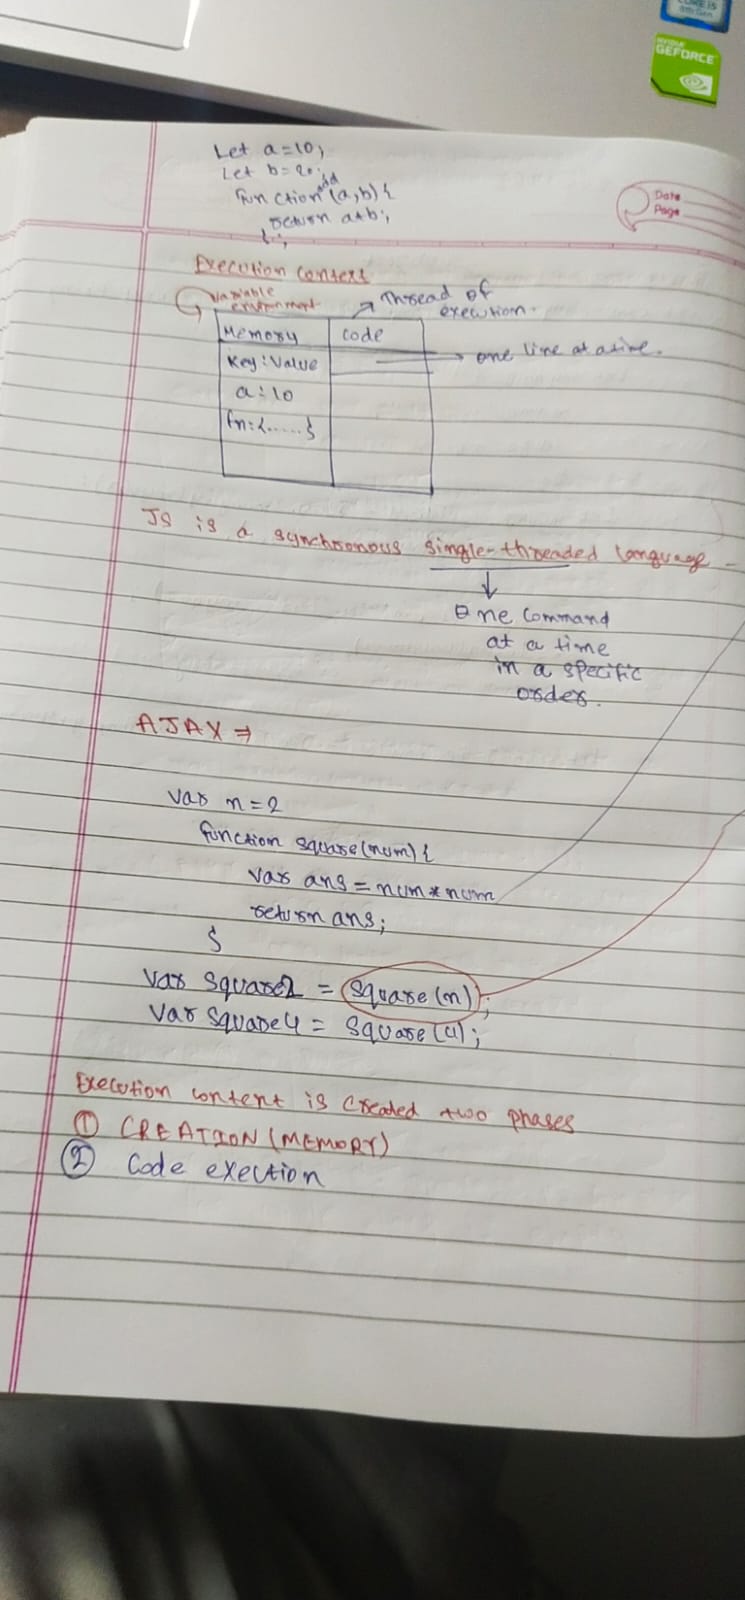 CORE i5
8th Gen
NVIDIA
GEFORCE
Let a=10;
Let b=20;
function add (a,b){
return a+b;
};
Date
Page
Execution context
Variable environment
Thread of execution.
Memory code
Key:Value
one line at a time.
a:10
fn:{.....}
JS is a synchronous single-threaded language
One command
at a time
in a specific
order.
AJAX ⇒
var n=2
function square(num){
var ans = num * num
return ans;
}
Var square2 = square(n);
Var square4 = square(4);
Execution content is created two phases
① CREATION (MEMORY)
② Code exection